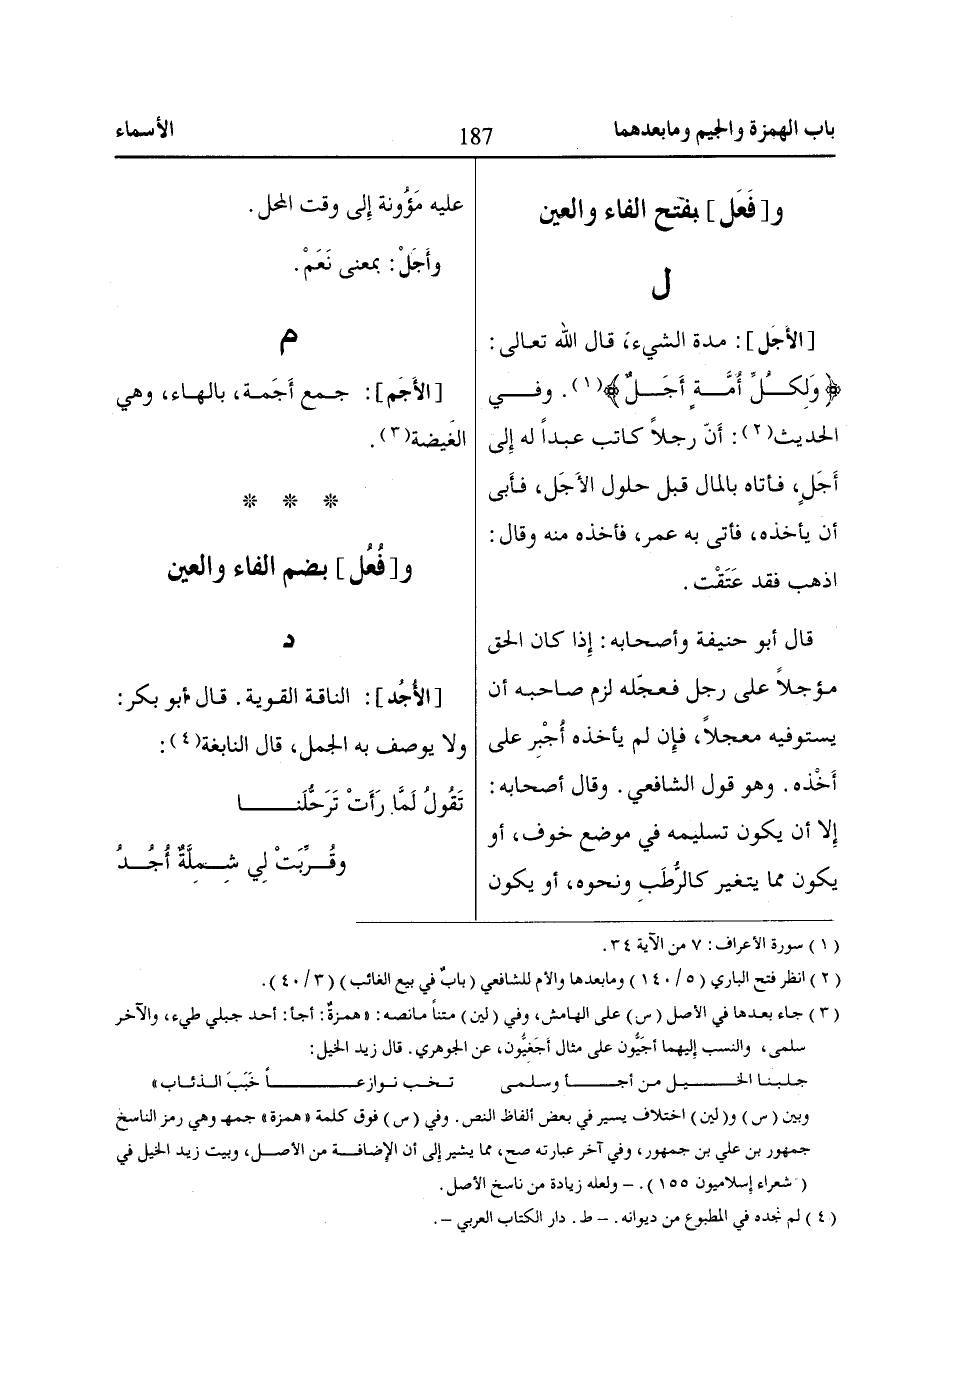 باب الهمزة والجيم ومابعدهما 187 الأسماء
و[فَعَل] بفتح الفاء والعين
ل
[الأَجَل]: مدة الشيء، قال الله تعالى:
﴿وَلِكُلِّ أُمَّةٍ أَجَلٌ﴾(١). وفي
الحديث(٢): أنّ رجلاً كاتب عبداً له إلى
أَجَلٍ، فأتاه بالمال قبل حلول الأَجَل، فأبى
أن يأخذه، فأتى به عمر، فأخذه منه وقال:
اذهب فقد عَتَقْت.
قال أبو حنيفة وأصحابه: إذا كان الحق
مؤجلاً على رجل فعجّله لزم صاحبه أن
يستوفيه معجلاً، فإن لم يأخذه أُجْبِر على
أَخْذه. وهو قول الشافعي. وقال أصحابه:
إلا أن يكون تسليمه في موضع خوف، أو
يكون مما يتغير كالرُّطَبِ ونحوه، أو يكون
عليه مَؤُونة إلى وقت المحل.
وأَجَلْ: بمعنى نَعَمْ.
م
[الأَجَم]: جمع أَجَمة، بالهاء، وهي
الغَيضة(٣).
* * *
و[فُعُل] بضم الفاء والعين
د
[الأُجُد]: الناقة القوية. قال أبو بكر:
ولا يوصف به الجمل، قال النابغة(٤):
تَقُولُ لَمَّا رَأَتْ تَرَحُّلَنا
وقُرِّبَتْ لِي شِمِلَّةٌ أُجُدُ
(١) سورة الأعراف: ٧ من الآية ٣٤.
(٢) انظر فتح الباري (٥/ ١٤٠) ومابعدها والأم للشافعي (بابٌ في بيع الغائب) (٣/ ٤٠).
(٣) جاء بعدها في الأصل (س) على الهامش، وفي (لين) متناً مانصه: «همزةٌ: أجأ: أحد جبلي طيء، والآخر
سلمى، والنسب إليهما أَجَئِيُّون على مثال أَجَعِيُّون، عن الجوهري. قال زيد الخيل:
جلبنا الخيل من أجأ وسلمى تخب نوازعاً خَبَبَ الذئاب»
وبين (س) و(لين) اختلاف يسير في بعض ألفاظ النص. وفي (س) فوق كلمة «همزة» جمهـ وهي رمز الناسخ
جمهور بن علي بن جمهور، وفي آخر عبارته صح، مما يشير إلى أن الإضافة من الأصل، وبيت زيد الخيل في
(شعراء إسلاميون ١٥٥). – ولعله زيادة من ناسخ الأصل.
(٤) لم نجده في المطبوع من ديوانه. – ط. دار الكتاب العربي –.